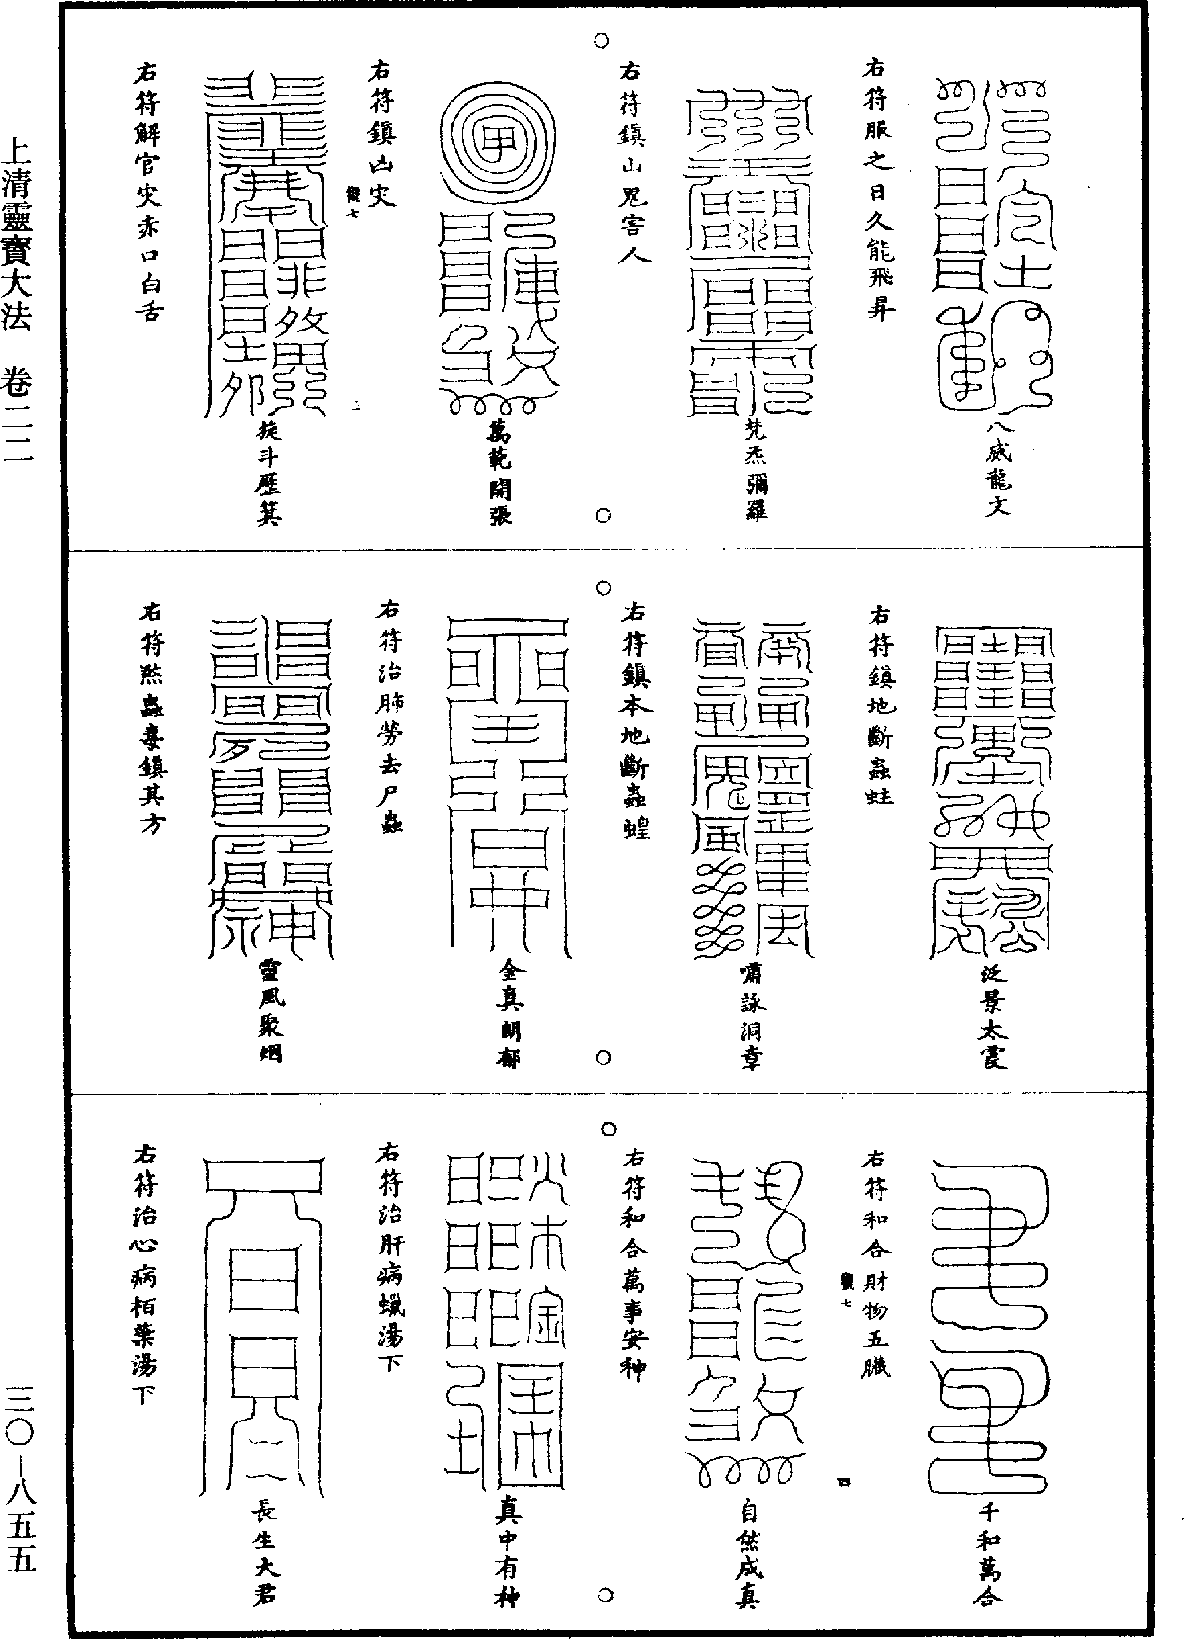 上清靈寶大法 卷二二
三〇—八五五
八威龍文
右符服之日久能飛昇
梵炁彌羅
右符鎮山鬼害人
萬範開張
右符鎮凶灾
旋斗歷箕
右符解官灾赤口白舌
泛景太霞
右符鎮地斷蟲蛀
嘯詠洞章
右符鎮本地斷蟲蝗
金真朗郁
右符治肺勞去尸蟲
靈風聚烟
右符照蟲毒鎮其方
千和萬合
右符和合財物五臟
四
自然成真
右符和合萬事安神
真中有神
右符治肝病蠟湯下
長生大君
右符治心病柏葉湯下